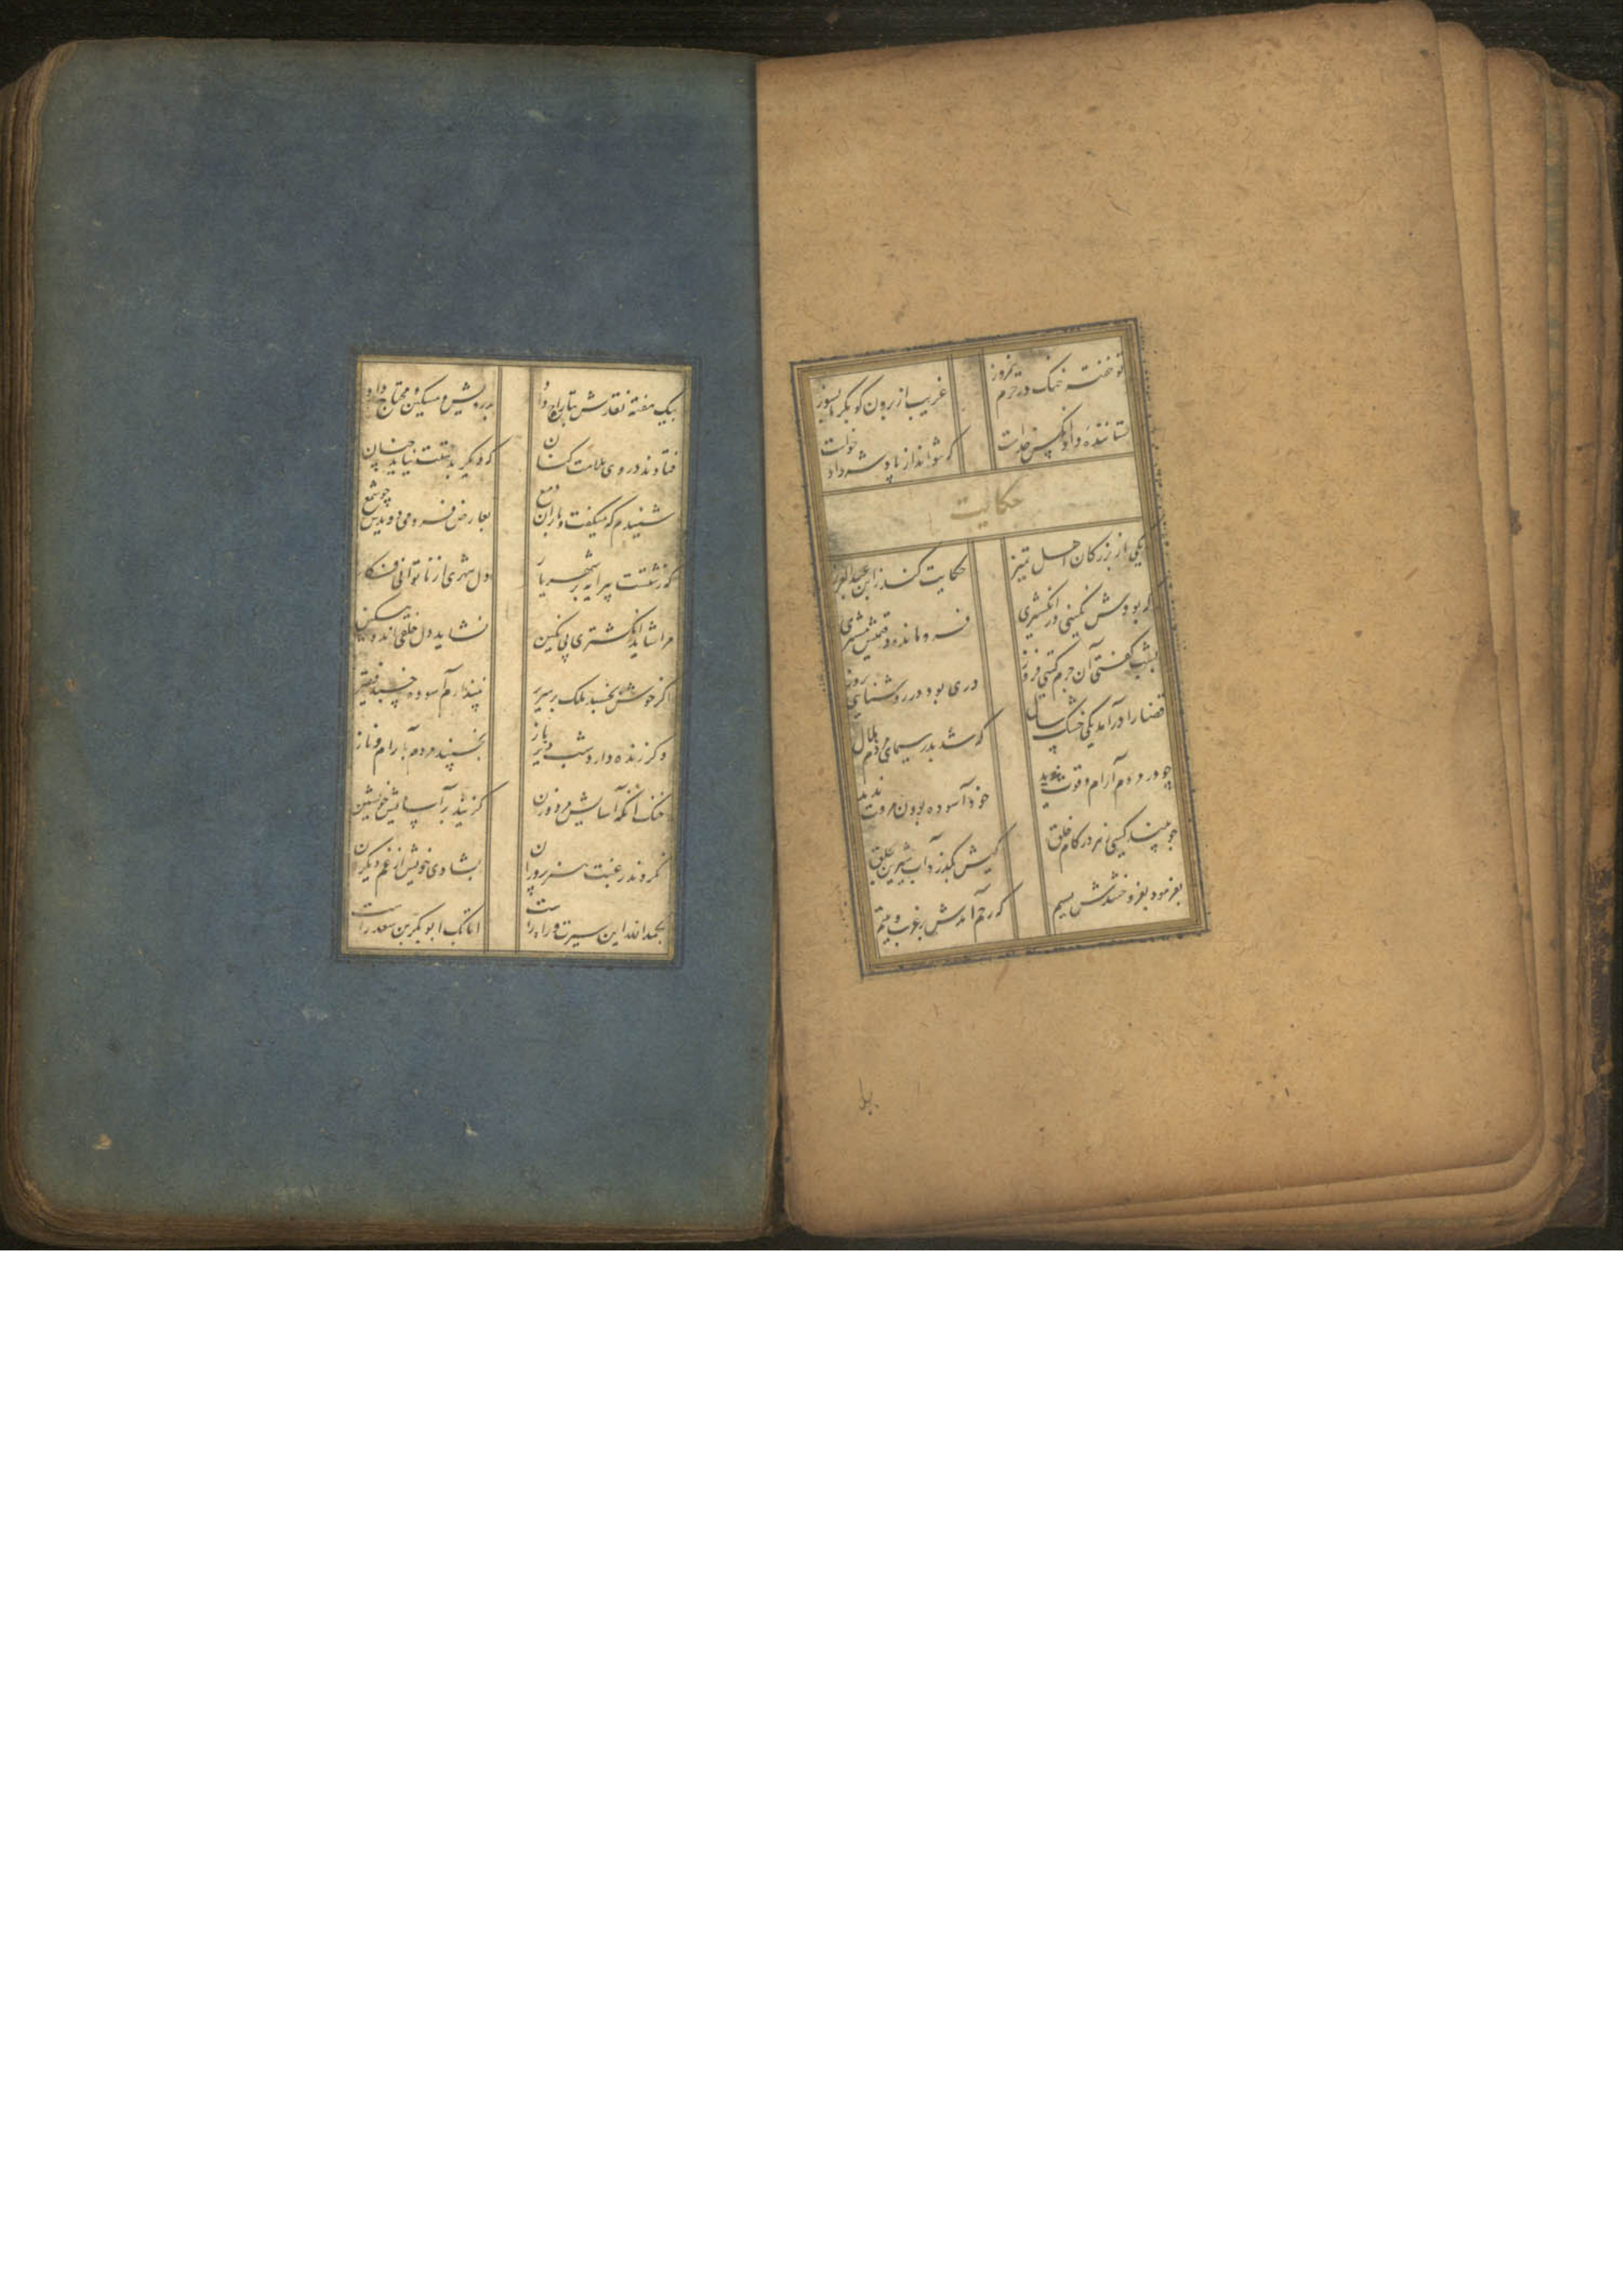 تو خفته خنک در حرم نیمروز
غریب از برون کو بگرما بسوز
ستاننده داد آنکس خداست
که نتواند از پادشه داد خواست
حکایت
یکی از بزرگان اهل تمیز
حکایت کند ز ابن عبدالعزیز
که بودش نگینی در انگشتری
فرو مانده در قیمتش مشتری
بشب گفتی آن جرم گیتی فروز
دری بود در روشنایی روز
قضا را درآمد یکی خشک سال
که شد بدر سیمای مردم هلال
چو در مردم آرام و قوت ندید
خود آسوده بودن مروت ندید
چو بیند کسی زهر در کام خلق
کیش بگذرد آب شیرین بحلق
بفرمود بفروختندش بسیم
که رحم آمدش بر غریب و یتیم
بیک هفته نقدش بتاراج داد
بدرویش و مسکین و محتاج داد
فتادند در وی ملامت کنان
که دیگر بدستت نیاید چنان
شنیدم که میگفت و باران دمع
بعارض فرو میدویدش چو شمع
که زشتست پیرایه بر شهریار
دل شهری از ناتوانی فکار
مرا شاید انگشتری بی نگین
نشاید دل خلقی اندوهگین
اگر خوش بخسبد ملک بر سریر
نپندارم آسوده خسبد فقیر
وگر زنده دارد شب دیر باز
بخسپند مردم بآرام و ناز
خنک آنکه آسایش مرد و زن
گزیند بر آسایش خویشتن
نکردند رغبت هنرپروران
بشادی خویش از غم دیگران
بحمدالله این سیرت و راه راست
اتابک ابوبکر بن سعد راست